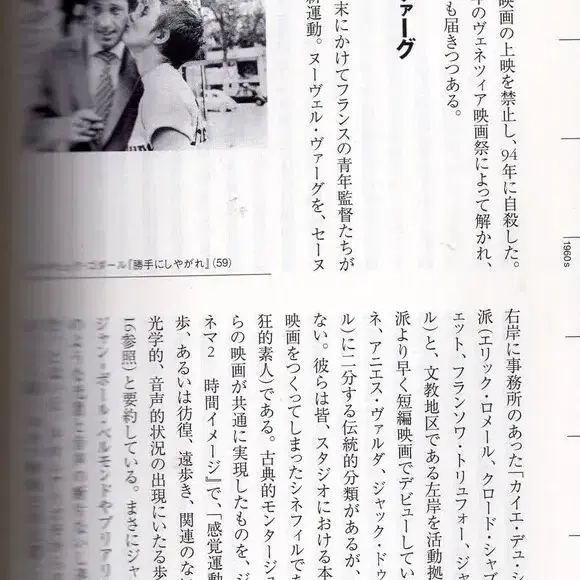 映画の上映を禁止し、94年に自殺した。
年のヴェネツィア映画祭によって解かれ、
も届きつつある。
ヴァーグ
末にかけてフランスの青年監督たちが
新運動。ヌーヴェル・ヴァーグを、セーヌ
ゴダール『勝手にしやがれ』(59)
1960s
右岸に事務所のあった「カイエ・デュ・シ
派(エリック・ロメール、クロード・シャ
ェット、フランソワ・トリュフォー、ジャ
ル)と、文教地区である左岸を活動拠
派より早く短編映画でデビューしてい
ネ、アニエス・ヴァルダ、ジャック・ドゥ
ル)に二分する伝統的分類があるが、
ない。彼らは皆、スタジオにおける本
映画をつくってしまったシネフィルであ
狂的素人)である。古典的モンタージュ
らの映画が共通に実現したものを、ジ
ネマ2 時間イメージ』で、「感覚運動
歩、あるいは彷徨、遠歩き、関連のな
光学的、音声的状況の出現にいたる歩
16参照)と要約している。まさにジャ
ジャン=ポール・ベルモンドやブリアリ